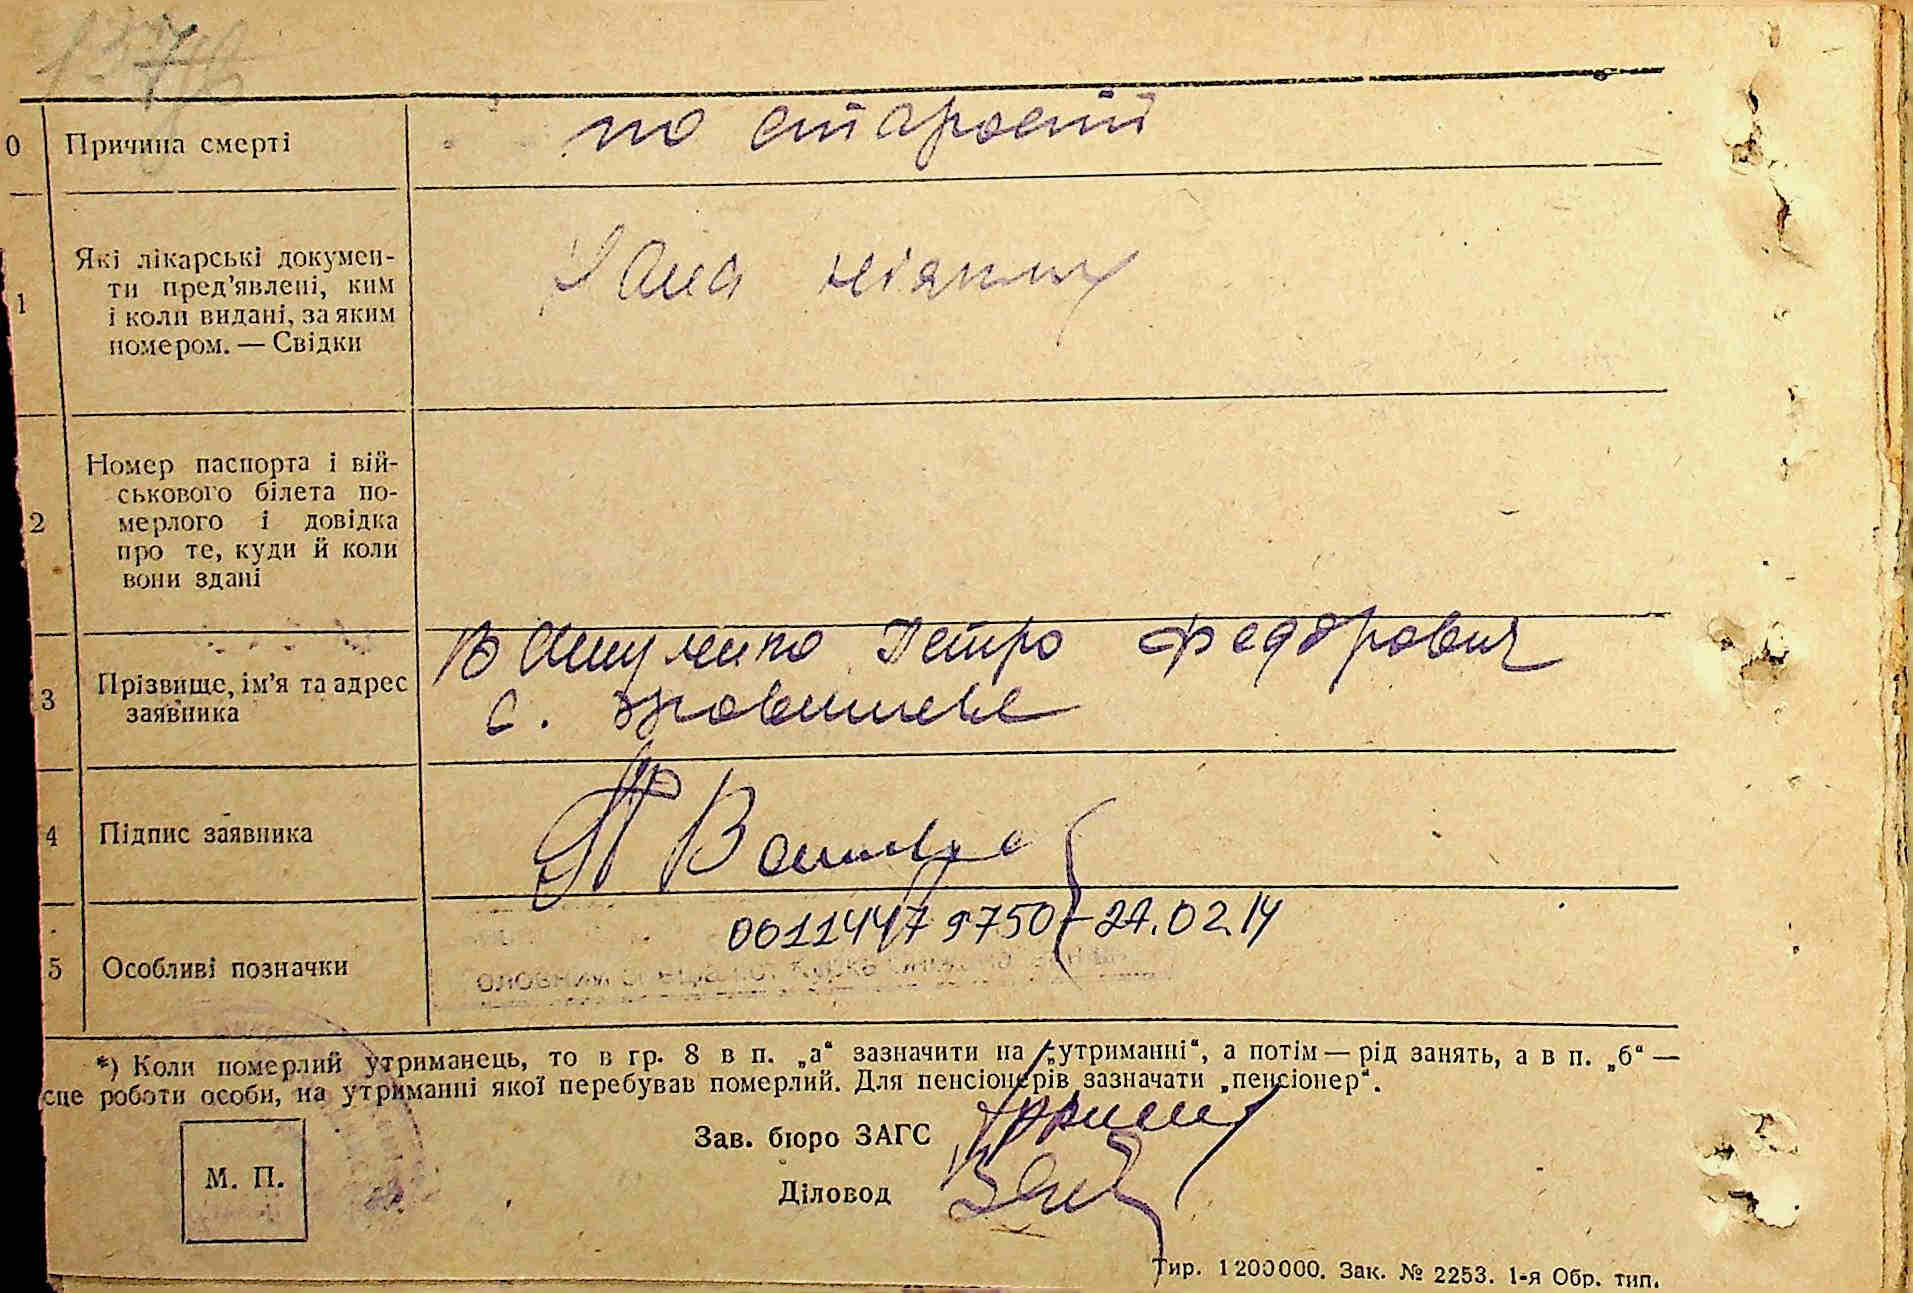 0 Причина смерті по старості
1 Які лікарські докумен-
ти пред'явлені, ким
і коли видані, за яким
номером. — Свідки
2 Номер паспорта і вій-
ськового білета по-
мерлого і довідка
про те, куди й коли
вони здані
3 Прізвище, ім'я та адрес
заявника
Петро Федорович
с.
4 Підпис заявника
00114479750 - 24.02.14
5 Особливі позначки
*) Коли померлий утриманець, то в гр. 8 в п. „а“ зазначити на „утриманні“, а потім — рід занять, а в п. „б“ —
сце роботи особи, на утриманні якої перебував померлий. Для пенсіонерів зазначати „пенсіонер“.
Зав. бюро ЗАГС
М. П.
Діловод
Тир. 1200000. Зак. № 2253. 1-я Обр. тип.